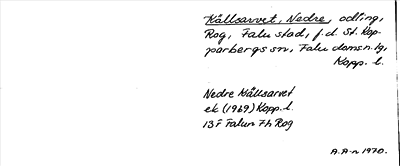 Källsarvet, Nedre, odling,
Rog, Falu stad, f.d. St. Kop-
parbergs sn, Falu doms.tg,
Kopp. l.
Nedre Källsarvet
ek (1969) Kopp. l.
13 F Falun 7h Rog
A.A-n 1970.